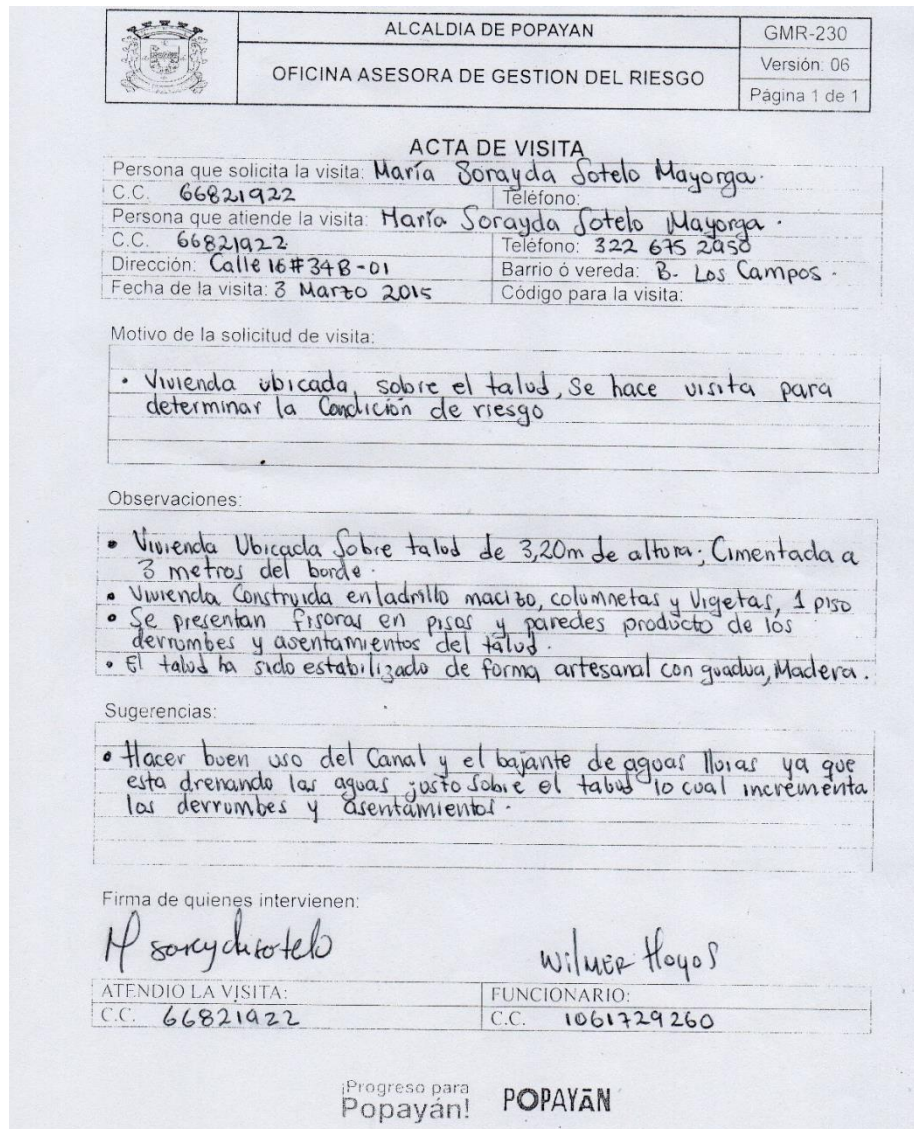 ALCALDIA DE POPAYAN
GMR-230
OFICINA ASESORA DE GESTION DEL RIESGO
Versión: 06
Página 1 de 1
ACTA DE VISITA
Persona que solicita la visita: María Sorayda Sotelo Mayorga.
C.C. 66821922 Teléfono:
Persona que atiende la visita: María Sorayda Sotelo Mayorga.
C.C. 66821922 Teléfono: 322 675 2950
Dirección: Calle 16#34B-01 Barrio ó vereda: B. Los Campos.
Fecha de la visita: 3 Marzo 2015 Código para la visita:
Motivo de la solicitud de visita:
• Vivienda ubicada sobre el talud, Se hace visita para
determinar la Condición de riesgo
Observaciones:
• Vivienda Ubicada Sobre talud de 3,20m de altura; Cimentada a
3 metros del borde.
• Vivienda Construida en ladrillo macizo, columnetas y Vigetas, 1 piso
• Se presentan fisuras en pisos y paredes producto de los
derrumbes y asentamientos del talud.
• El talud ha sido estabilizado de forma artesanal con guadua, Madera.
Sugerencias:
• Hacer buen uso del Canal y el bajante de aguas lluias ya que
esta drenando las aguas justo sobre el talud lo cual incrementa
los derrumbes y asentamientos.
Firma de quienes intervienen:
M soraydasotelo
Wilmer Hoyos
ATENDIO LA VISITA: FUNCIONARIO:
C.C. 66821922 C.C. 1061729260
¡Progreso para
Popayán!
POPAYÁN